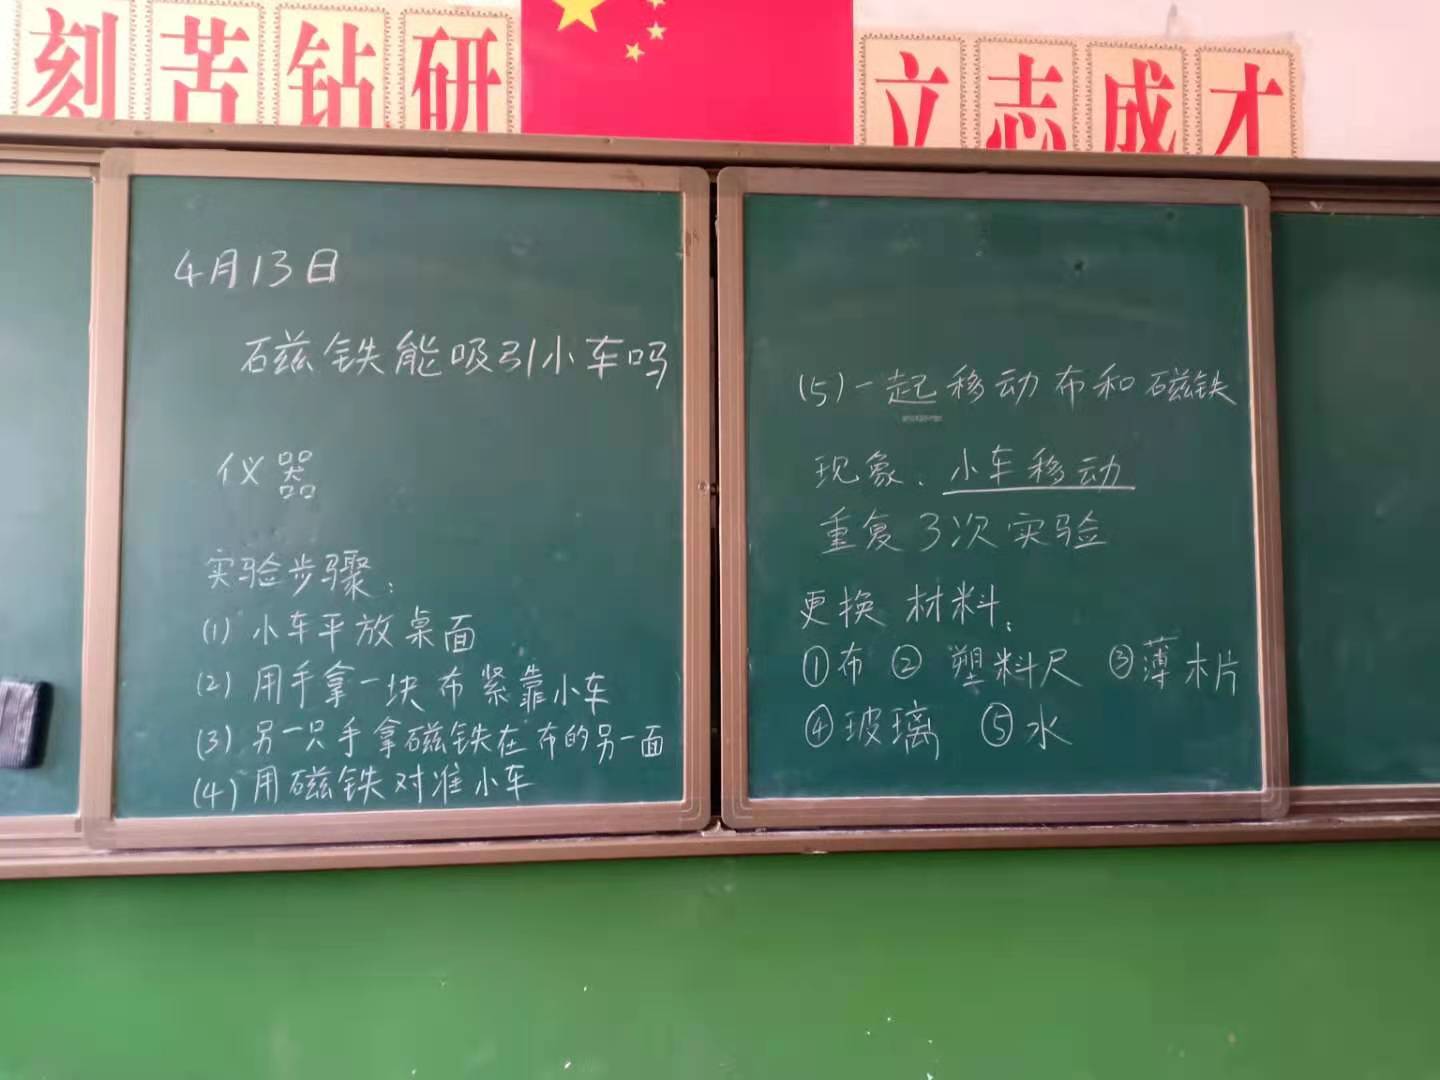 刻苦钻研
立志成才
4月13日
磁铁能吸引小车吗
仪器
实验步骤:
(1) 小车平放桌面
(2) 用手拿一块布紧靠小车
(3) 另一只手拿磁铁在布的另一面
(4) 用磁铁对准小车
(5) 一起移动布和磁铁
现象、小车移动
重复3次实验
更换材料:
①布 ② 塑料尺 ③薄木片
④玻璃 ⑤水